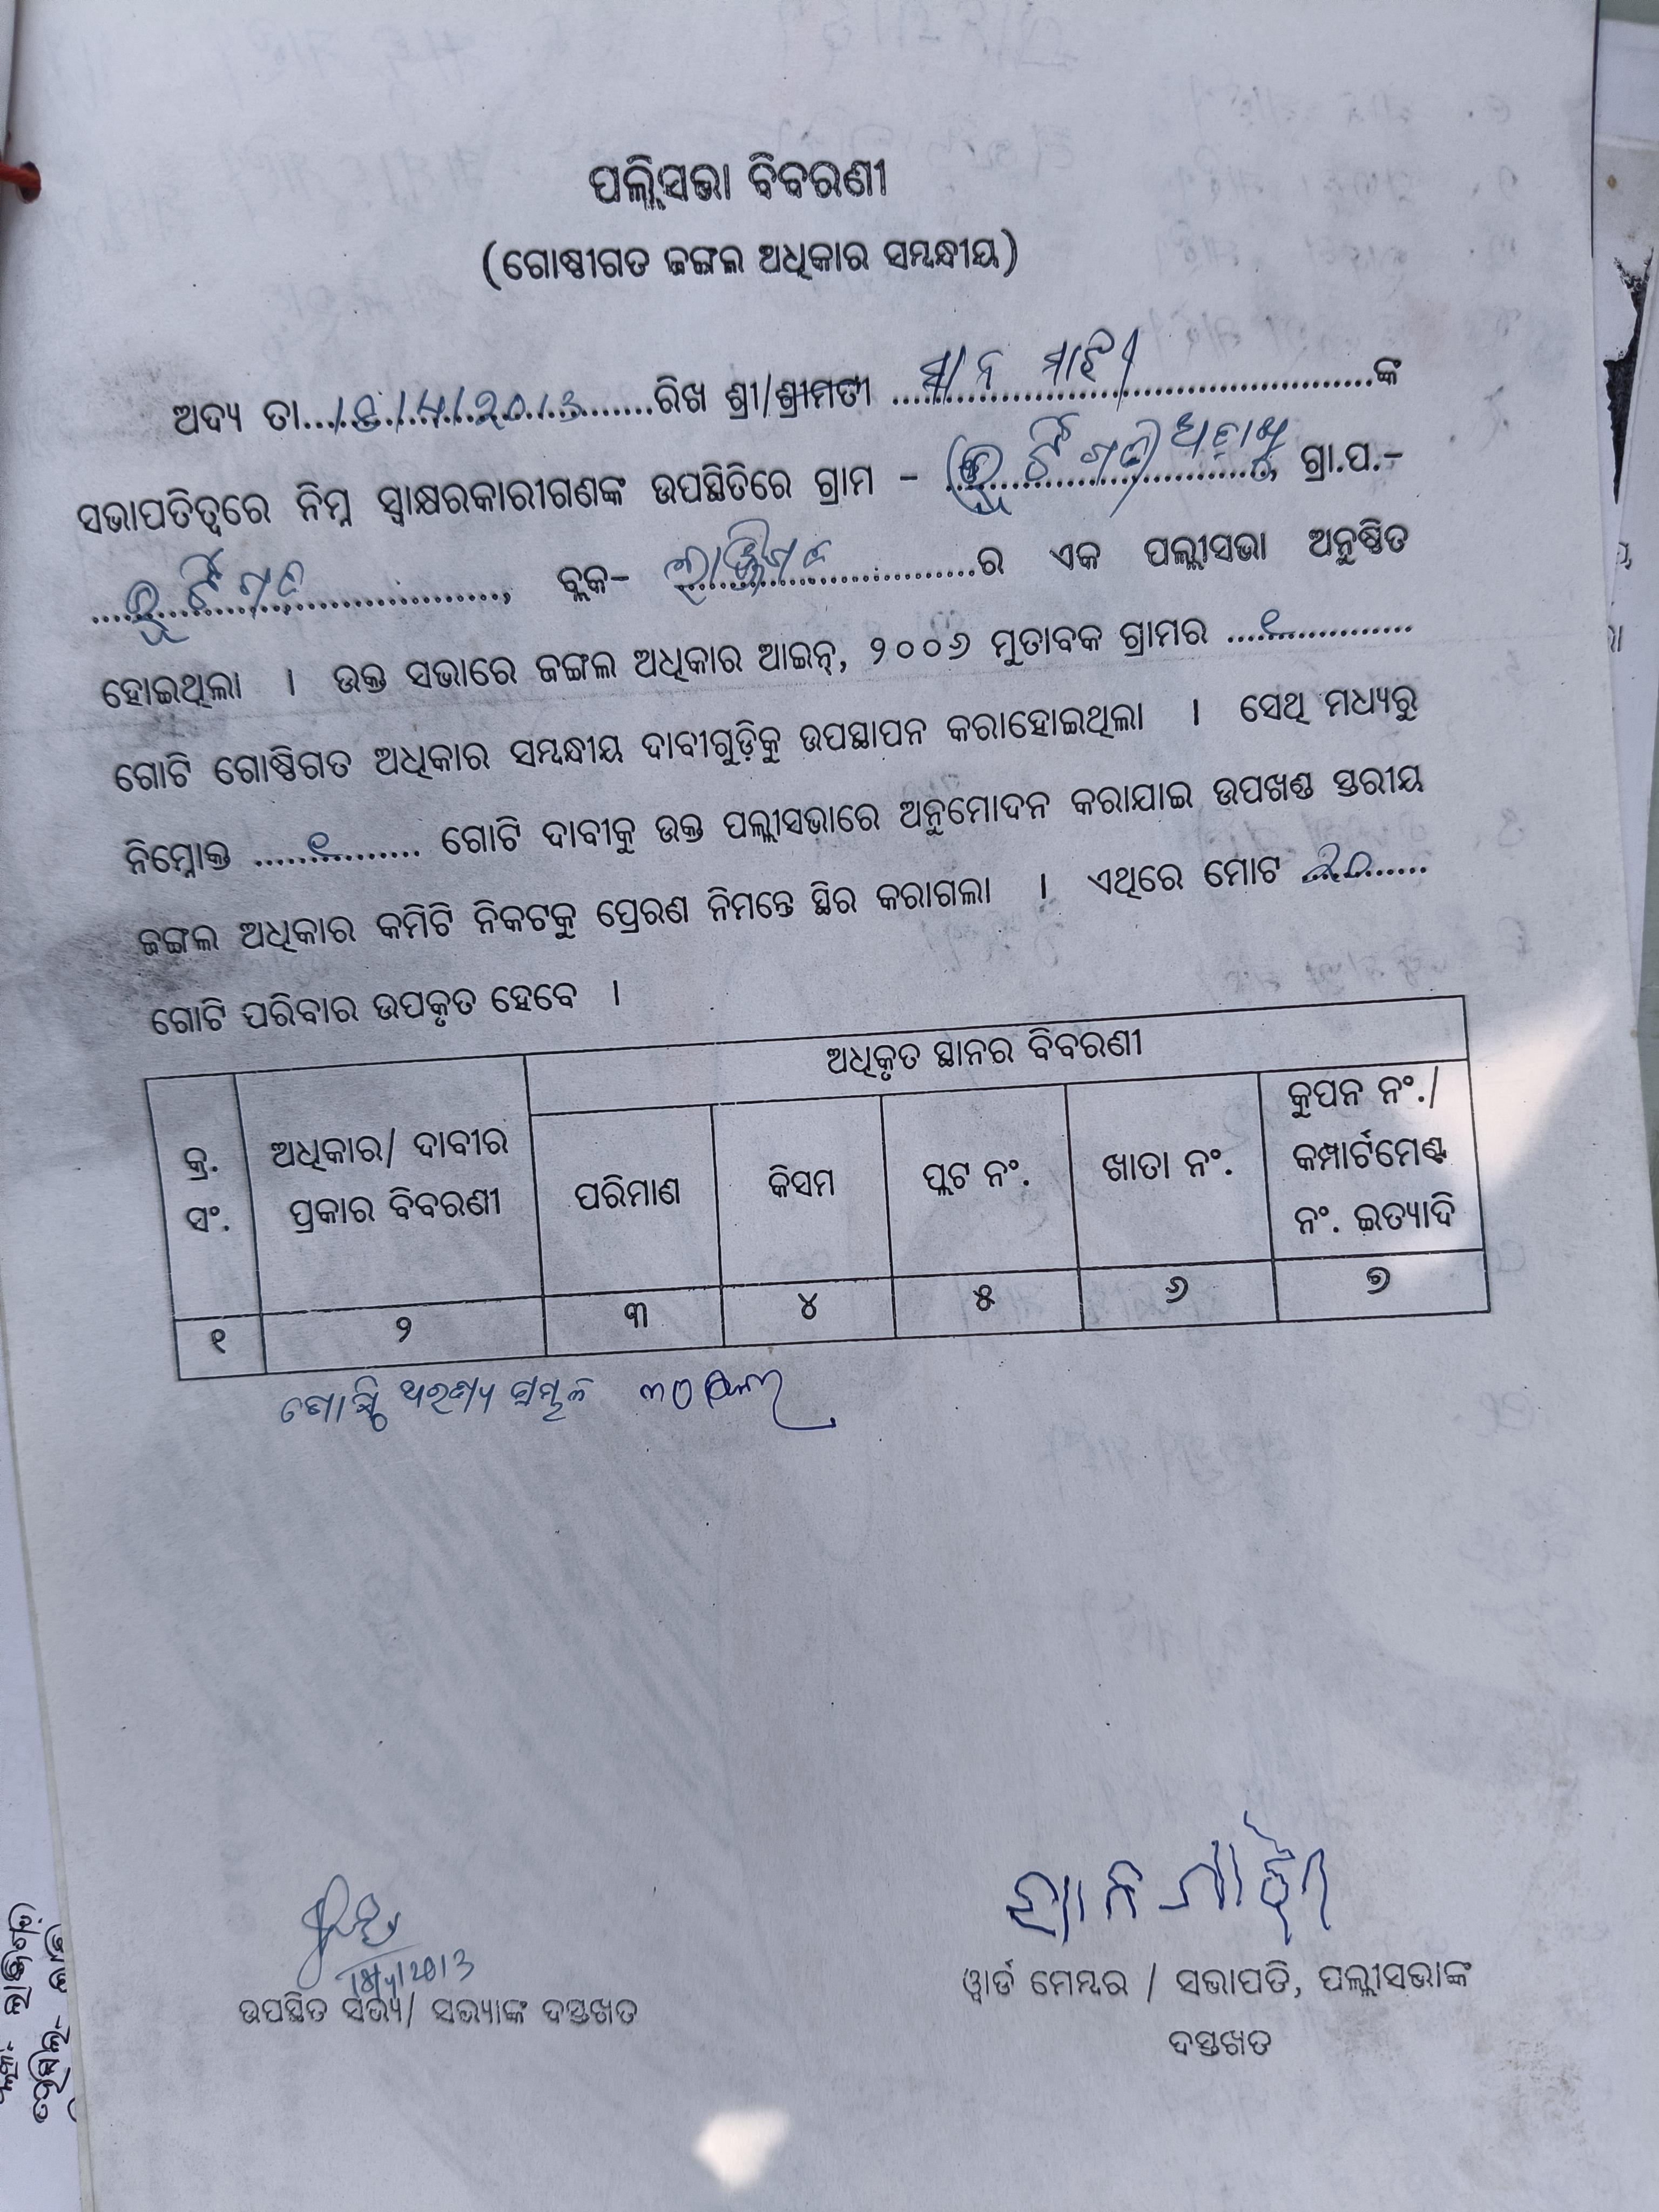 ପଲ୍ଲିସଭା ବିବରଣୀ
(ଗୋଷ୍ଠୀଗତ ଜଙ୍ଗଲ ଅଧିକାର ସମ୍ବନ୍ଧୀୟ)
ଅଦ୍ୟ ତା..........................ରିଖ ଶ୍ରୀ/ଶ୍ରୀମତୀ ମାନ ମାଝୀ ଙ୍କ
ସଭାପତିତ୍ୱରେ ନିମ୍ନ ସ୍ୱାକ୍ଷରକାରୀଗଣଙ୍କ ଉପସ୍ଥିତିରେ ଗ୍ରାମ – , ଗ୍ରା.ପ.–
, ବ୍ଲକ– ର ଏକ ପଲ୍ଲୀସଭା ଅନୁଷ୍ଠିତ
ହୋଇଥିଲା । ଉକ୍ତ ସଭାରେ ଜଙ୍ଗଲ ଅଧିକାର ଆଇନ୍, ୨୦୦୬ ମୁତାବକ ଗ୍ରାମର ୧
ଗୋଟି ଗୋଷ୍ଠିଗତ ଅଧିକାର ସମ୍ବନ୍ଧୀୟ ଦାବୀଗୁଡ଼ିକୁ ଉପସ୍ଥାପନ କରାହୋଇଥିଲା । ସେଥି ମଧ୍ୟରୁ
ନିମ୍ନୋକ୍ତ ୧ ଗୋଟି ଦାବୀକୁ ଉକ୍ତ ପଲ୍ଲୀସଭାରେ ଅନୁମୋଦନ କରାଯାଇ ଉପଖଣ୍ଡ ସ୍ତରୀୟ
ଜଙ୍ଗଲ ଅଧିକାର କମିଟି ନିକଟକୁ ପ୍ରେରଣ ନିମନ୍ତେ ସ୍ଥିର କରାଗଲା । ଏଥିରେ ମୋଟ ୨୦
ଗୋଟି ପରିବାର ଉପକୃତ ହେବେ ।
ଅଧିକୃତ ସ୍ଥାନର ବିବରଣୀ
କ୍ର. ସଂ.
ଅଧିକାର/ ଦାବୀର
ପ୍ରକାର ବିବରଣୀ
ପରିମାଣ
କିସମ
ପ୍ଲଟ ନଂ.
ଖାତା ନଂ.
କୁପନ ନଂ./
କମ୍ପାର୍ଟମେଣ୍ଟ
ନଂ. ଇତ୍ୟାଦି
୧ ୨ ୩ ୪ ୫ ୬ ୭
ମାନ ମାଝୀ
ଉପସ୍ଥିତ ସଭ୍ୟ/ ସଭ୍ୟାଙ୍କ ଦସ୍ତଖତ
ୱାର୍ଡ ମେମ୍ବର / ସଭାପତି, ପଲ୍ଲୀସଭାଙ୍କ
ଦସ୍ତଖତ